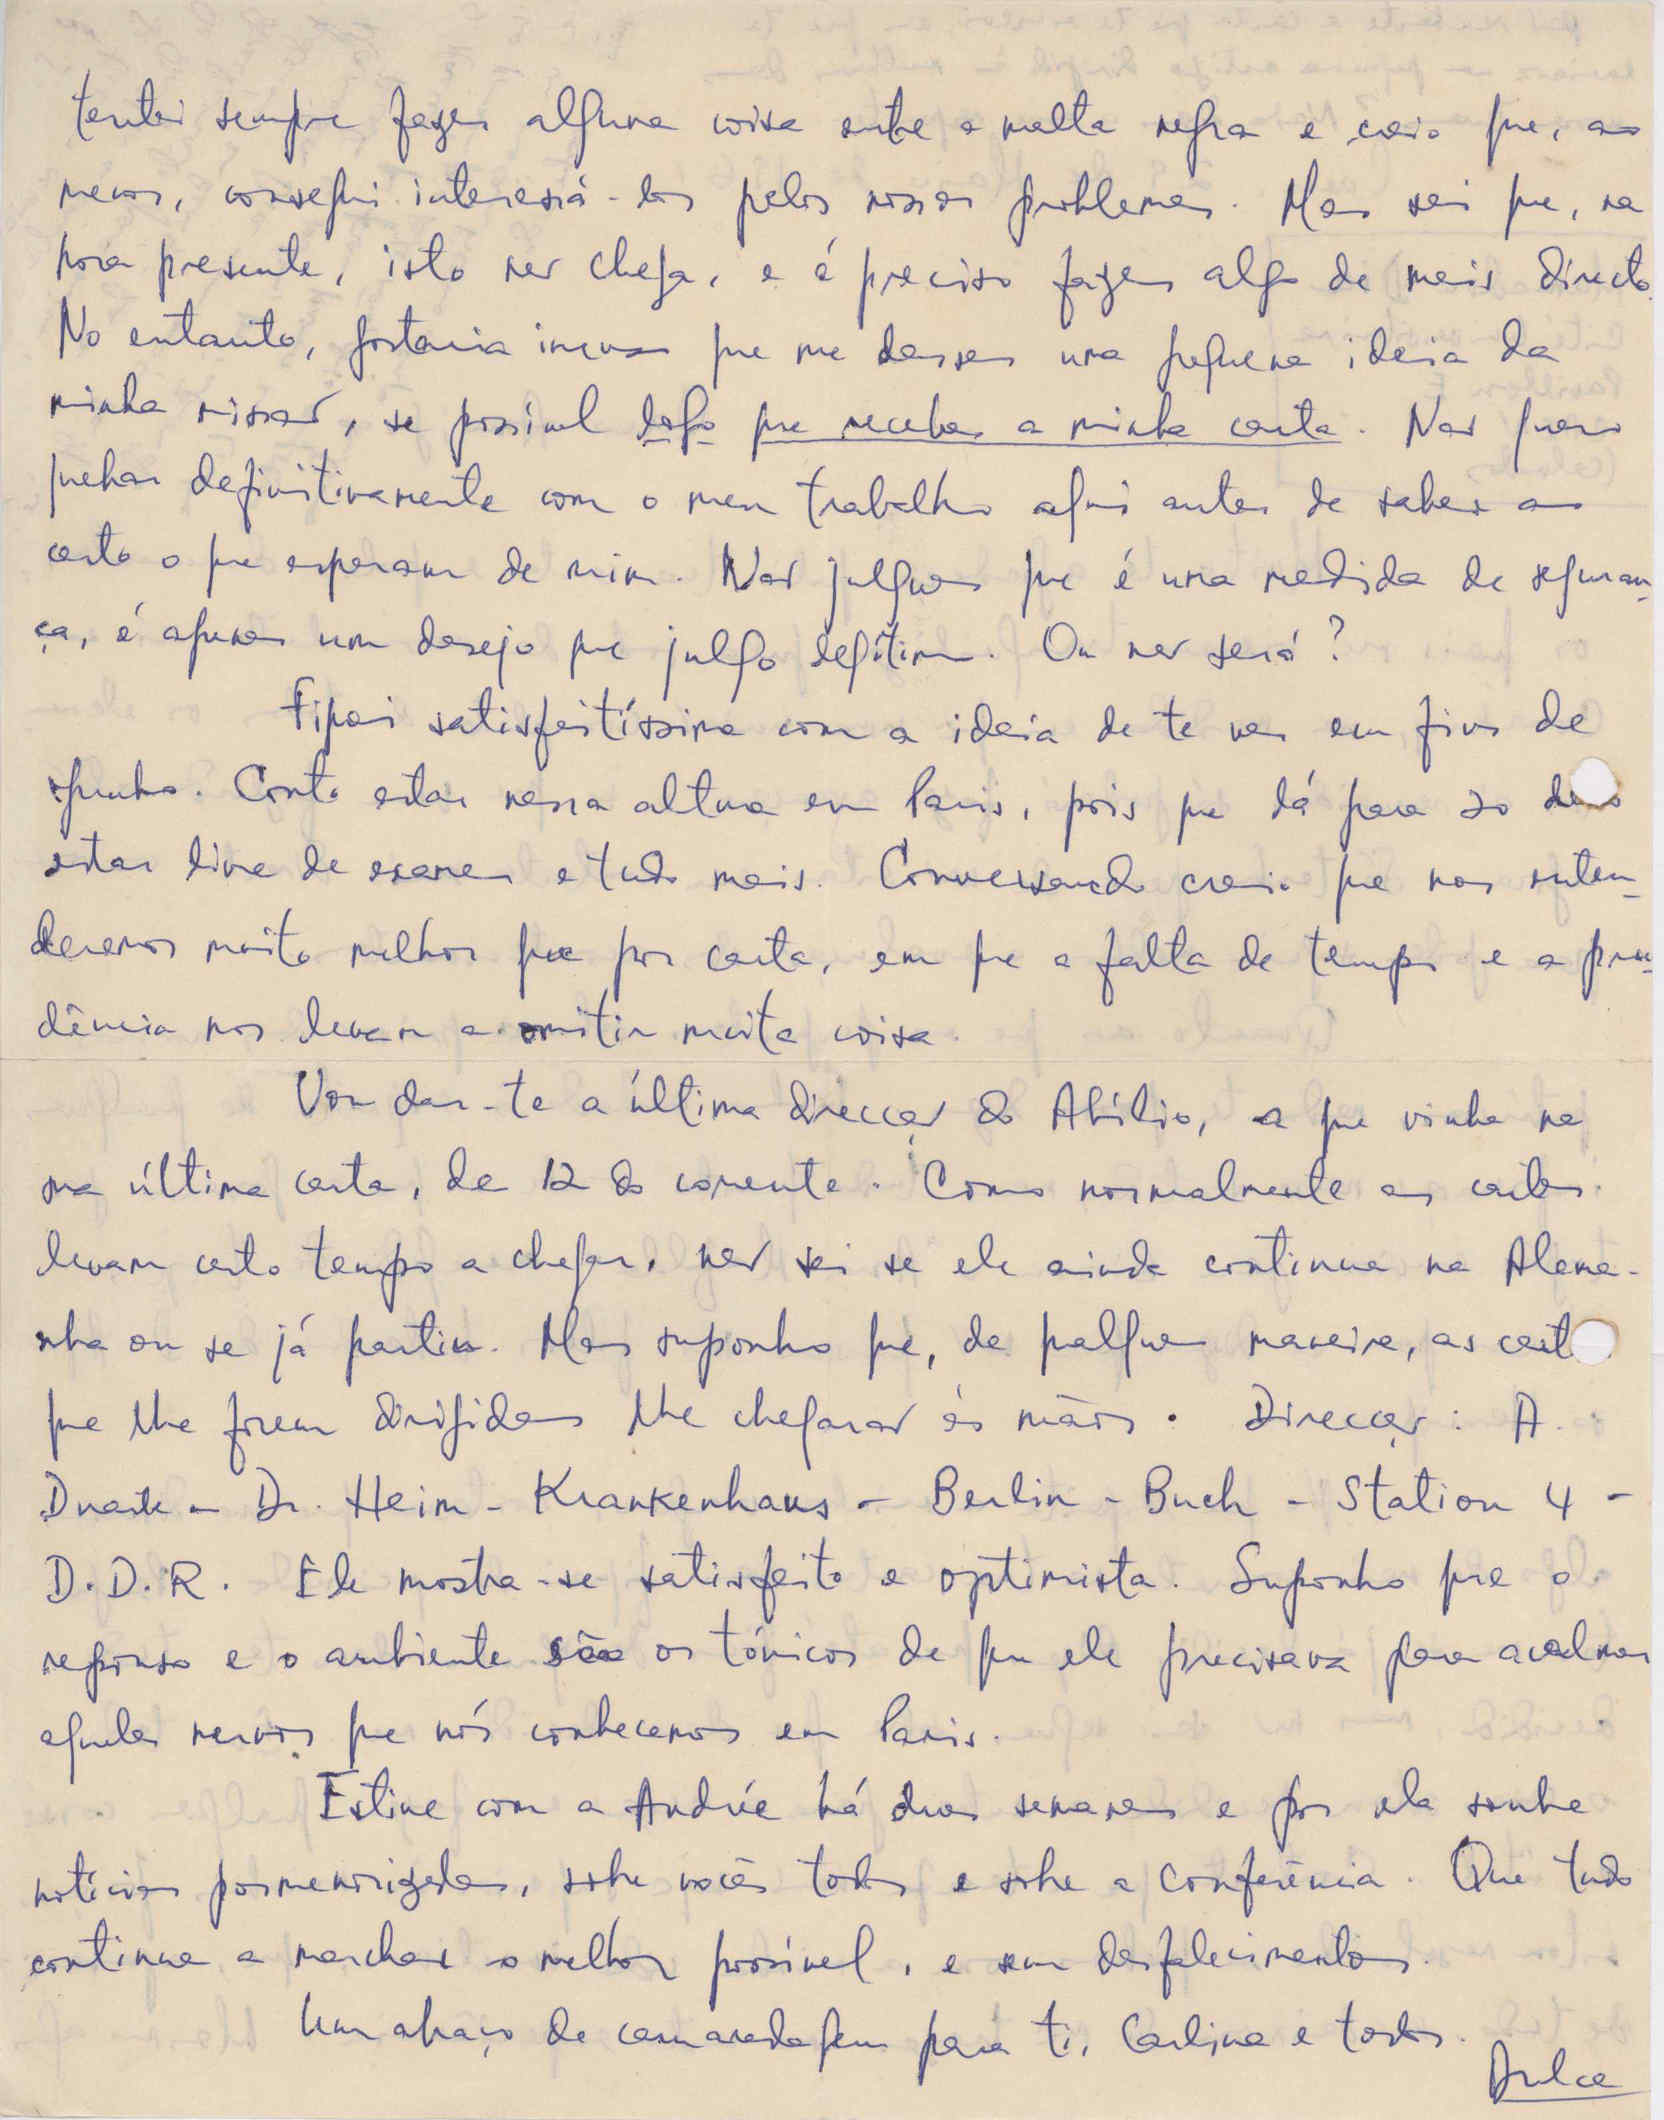 tentei sempre fazer alguma coisa entre a malta negra e creio que, ao
menos, consegui interessá-los pelos nossos problemas. Mas sei que, na
hora presente, isto não chega, e é preciso fazer algo de mais directo.
No entanto, gostaria imenso que me desses uma pequena ideia da
minha missão, se possível logo que recebas a minha carta. Não quero
quebrar definitivamente com o meu trabalho aqui antes de saber ao
certo o que esperam de mim. Não julgues que é uma medida de seguran-
ça, é apenas um desejo que julgo legítimo. Ou não será?
Fiquei satisfeitíssima com a ideia de te ver em fins de
Junho. Conto estar nessa altura em Paris, pois que lá para 20 devo
estar livre de exames e tudo mais. Conversando creio que nos enten-
deremos muito melhor que por carta, em que a falta de tempo e a pru-
dência nos levam a omitir muita coisa.
Vou dar-te a última direcção do Abílio, a que vinha na
sua última carta, de 12 do corrente. Como normalmente as cartas
levam certo tempo a chegar, não sei se ele ainda continua na Alema-
nha ou se já partiu. Mas suponho que, de qualquer maneira, as cartas
que lhe forem dirigidas lhe chegarão às mãos. Direcção: A.
Duarte - Dr. Heim - Krankenhaus - Berlin - Buch - Station 4 -
D.D.R. Ele mostra-se satisfeito e optimista. Suponho que o
repouso e o ambiente são os tónicos de que ele precisava para acalmar
aqueles nervos que nós conhecemos em Paris.
Estive com a Andrée há duas semanas e por ela soube
notícias pormenorizadas, sobre vocês todos e sobre a conferência. Que tudo
continue a marchar o melhor possível, e sem desfalecimentos.
Um abraço de camaradagem para ti, Carlina e todos.
Dulce